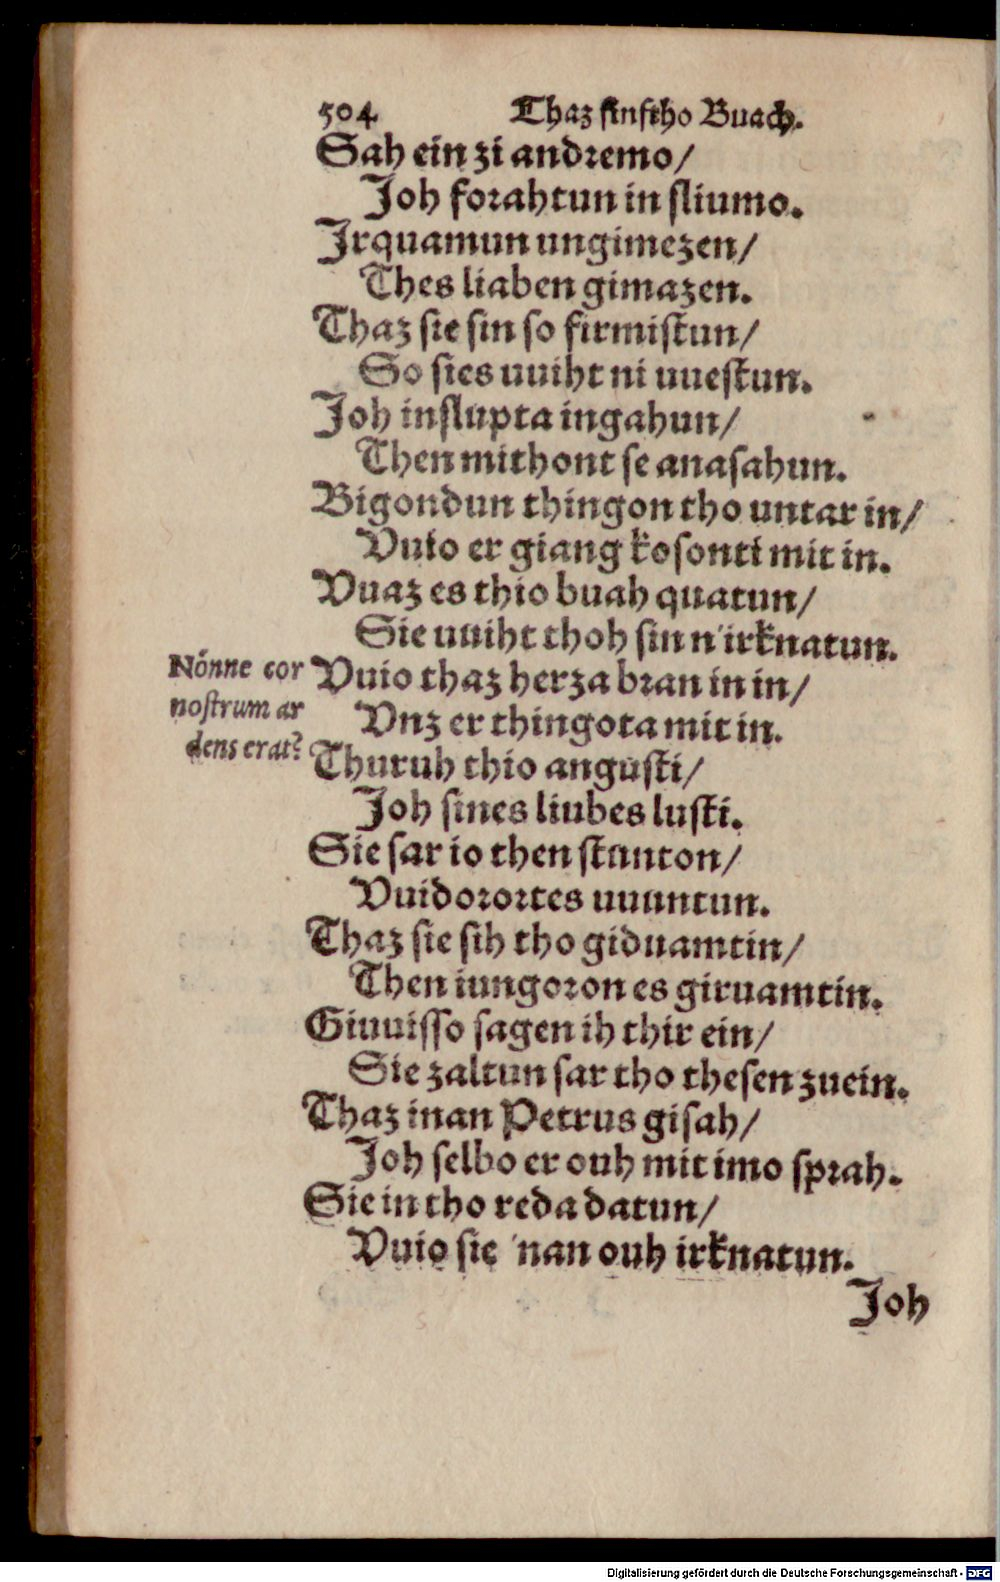 504 Thaz finftho Buach.
Sah ein zi andremo/
Joh forahtun in sliumo.
Jrquamun ungimezen/
Thes liaben gimazen.
Thaz sie sin so firmistun/
So sies uuiht ni uuestun.
Joh inslupta ingahun/
Then mithont se anasahun.
Bigondun thingon tho untar in/
Vuio er giang kosonti mit in.
Vuaz es thio buah quatun/
Sie uuiht thoh sin n'irknatun.
Nónne cor
nostrum ar
dens erat?
Vuio thaz herza bran in in/
Vnz er thingota mit in.
Thuruh thio angusti/
Joh sines liubes lusti.
Sie sar io then stunton/
Vuidorortes uuuntun.
Thaz sie sih tho giduamtin/
Then iungoron es giruamtin.
Giuuisso sagen ih thir ein/
Sie zaltun sar tho thesen zuein.
Thaz inan Petrus gisah/
Joh selbo er ouh mit imo sprah.
Sie in tho reda datun/
Vuio sie 'nan ouh irknatun.
Joh
Digitalisierung gefördert durch die Deutsche Forschungsgemeinschaft - DFG